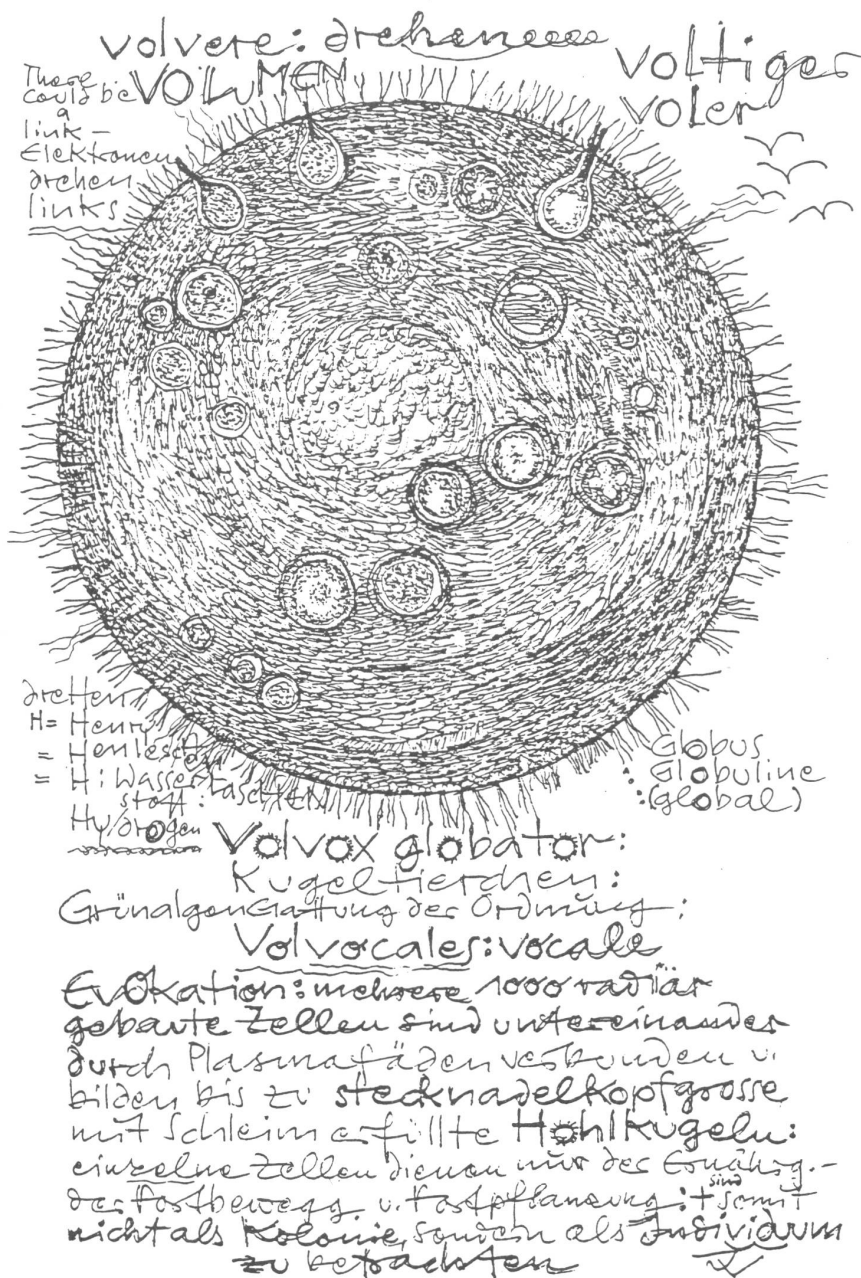 volvere: dreheneeee
VOLUMEN
voltiger
voler
There
could be
a
link –
Elektronen
drehen
links
drehen
H = Henry
= Henlesche
= H: Wasser
stoff:
Hydrogen
Globus
Globuline
(global)
Volvox globator:
Kugeltierchen:
Grünalgengattung der Ordnung:
Volvocales: vocale
Evokation: mehrere 1000 radiär
gebaute Zellen sind untereinander
durch Plasmafäden verbunden u.
bilden bis zu stecknadelkopfgrosse
mit Schleim erfüllte Hohlkugeln:
einzelne Zellen dienen nur der Ernährg.-
der Fortbewegg u. Fortpflanzung: + sind somit
nicht als Kolonie, sondern als Individuum
zu betrachten